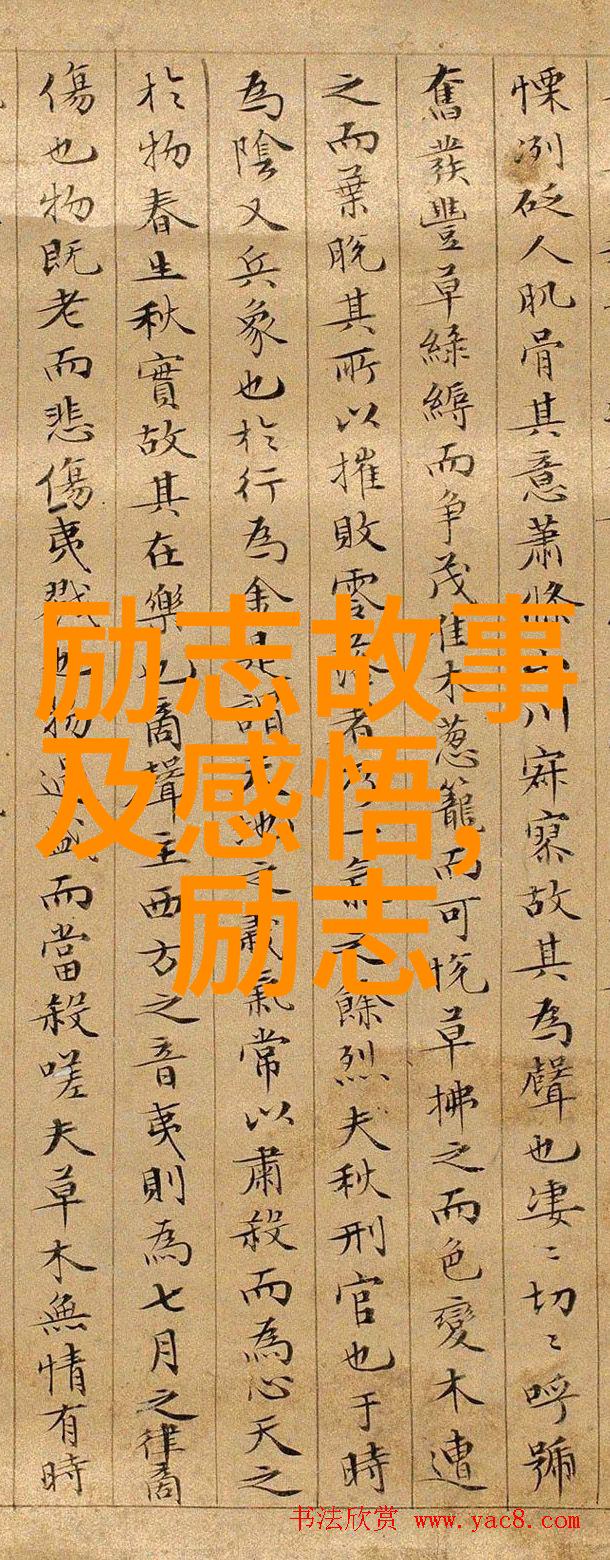 慄冽砭人肌骨其意蕭條山川寂寥故其為聲也淒〻切〻呼號
奮發豐草綠縟而争茂佳木葱籠而可悦草拂之而色變木遭
之而葉脫其所以摧敗零落者乃一氣之餘烈夫秋刑官也于時
為陰又兵象也於行為金是謂天地之義氣常以肅殺而為心天之
於物春生秋實故其在樂也商聲主西方之音夷則為七月之律商
傷也物既老而悲傷夷戮也物過盛而當殺嗟夫草木無情有時
励志故事
及感悟,
励志
书法欣赏 www.yac8.com